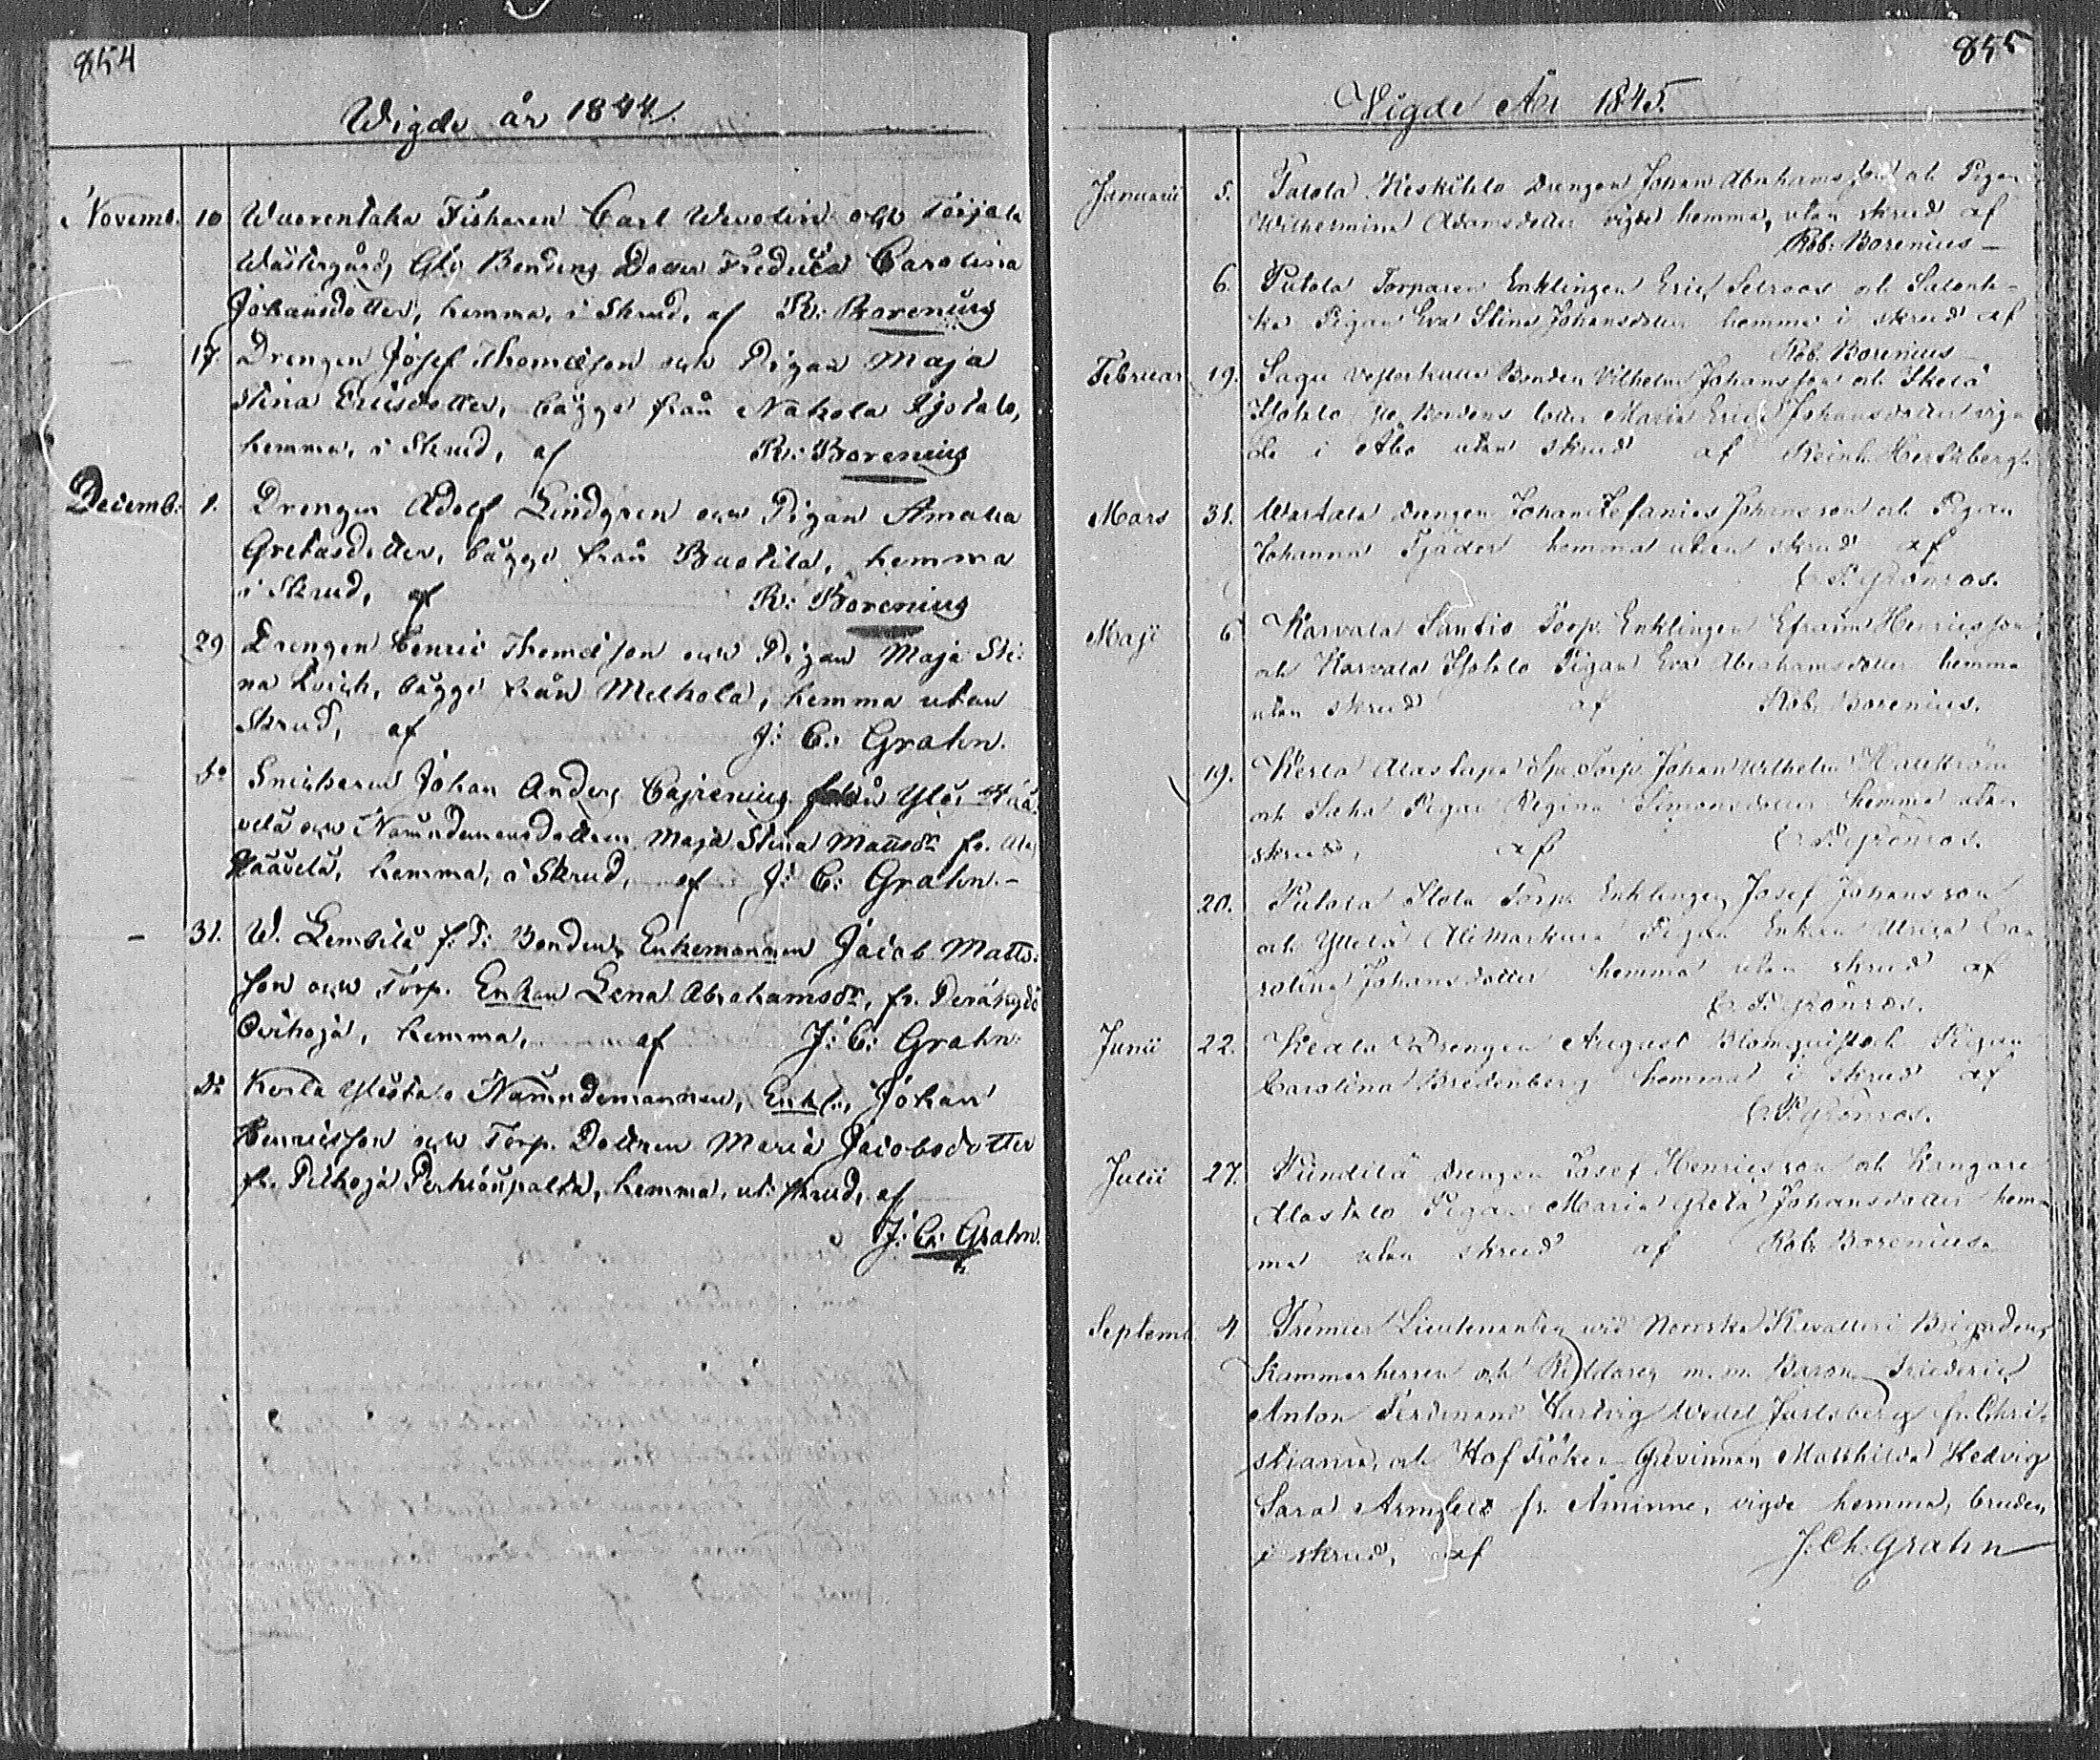 854
Wigde år 1844.
Novemb. 10 Wuorentaka Fiskaren Carl Wevolin och Toijala
Wästergårds Glo Bondens Dotter Fredrica Carolina
Johansdotter, hemma, i Skrud, af R: Borenius
17 Drengen Josef Thomasson och Pigan Maja
Stina Ericsdotter, bägge från Nakola Isotalo,
hemma, i Skrud, af R: Borenius
Decemb: 1. Drengen Adolf Lindgren och Pigan Amalia
Gretasdotter, bägge från Buotila, hemma
i Skrud, af R: Borenius
29 Drengen Henric Thomasson och Pigan Maja Sti:
na Qvick, bägge från Melkola, hemma utan
Skrud, af J: C: Grahn.
do Snickaren Johan Anders Cajrenius från Ylis Haa
velä och Nämndemansdottren Maja Stina Mattsdr fr. Ala
Haavelä, hemma, i Skrud, af J: C: Grahn.-
- 31. W. Lembilä f: d: Bonden, Enkemannen Jacob Matts:
son och Torp. Enkan Lena Abrahamsdr, fr.
hemma, af J: C: Grahn.
do Kerla Ylistalo Nämndemannen, Enkl., Johan
Henricsson och Torp. Dottren Maria Jacobsdotter
fr. Pilhoja hemma, ut: skrud, af
J: C: Grahn.
855
Vigde År 1845.
Januarii 5. Keskitalo Drengen Johan Abrahamsson och Pigan
Wilhelmina Adamsdotter vigde hemma, utan skrud af
Rob: Borenius
6. Putola Torparen Enklingen Eric Selroos och
Pigan Eva Stina Johansdotter hemma i skrud af
Rob. Borenius
Februar 19. Sagu Bonden Vilhelm Johansson och
Isotalo Bondens dotter Maria Erica Johansdotter vig=
de i Åbo utan skrud af Reinh. Hertzberg.
Mars 31. Wartala Drengen Johan Stefanies Johansson och Pigan
Johanna Tjäder hemma utan skrud af
C. P. Grönros.
Maji 6 Karvala Santio Torp. Enklingen Efraim Henricsson
och Karvala Isotalo Pigan Eva Abrahamsdotter hemma
utan skrud af Rob. Borenius.
19. Kerla Torp. Johan Wilhelm
och Pigan Regina Simonsdotter hemma utan
skrud, af C. P. Grönros.
20. Putola Torp. Enklingen Josef Johansson
och Ylttelä Alimarkula Pigan Enkan Ulrica Ca=
rolina Johansdotter hemma utan skrud af
C. P. Grönros.
Junii 22. Drengen August Blomqvist och Pigan
Carolina Bredenberg hemma i skrud af
C. P. Grönros.
Julii 27. Drengen Josef Henricsson och Kangare
Alastalo Pigan Maria Greta Johansdotter hem=
ma utan skrud af Rob. Borenius.
Septemb 4 Premier Lieutenanten vid Norrska Kavalleri Brigaden,
Kammarherren och Riddaren m. m. Baron Friederic
Anton Ferdinand Hartvig Wedel Jarlsberg fr. Chri-
stiania, och Hof Fröken Grevinnan Mathilda Hedvig
Sara Armfelt fr. Åminne, vigde hemma, bruden
i skrud, af J. Ch. Grahn